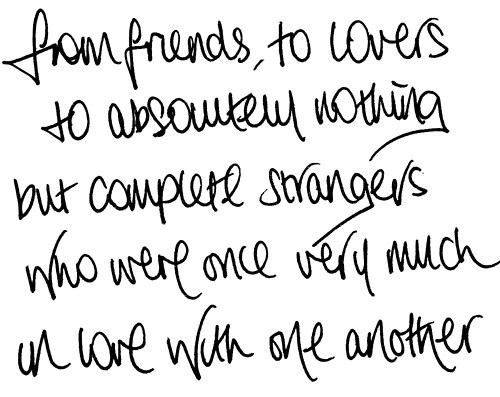 from friends, to lovers
to absolutely nothing
but complete strangers
who were once very much
in love with one another